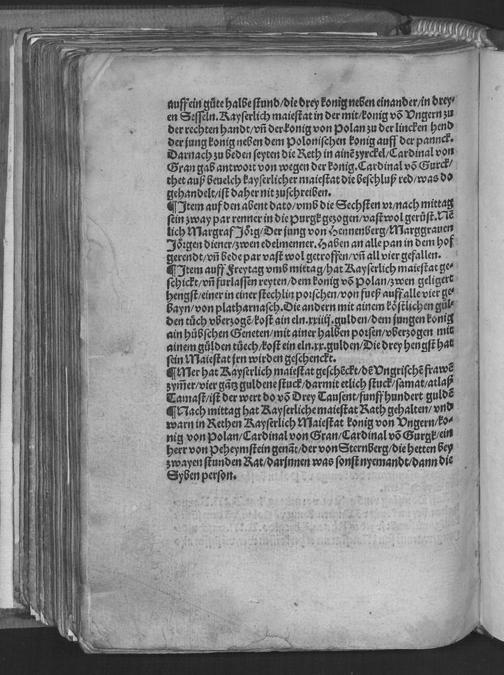 auff ein gůte halbe stund/die drey konig neben einander/in drey-
en Sesseln. Kayserlich maiestat in der mit/konig võ Vngern zu
der rechten handt/vñ der konig von Polan zu der lincken hend
der jung konig neben dem Polonischen konig auff der pannck.
Darnach zu beden seyten die Reth in ainẽ zyrckel/Cardinal von
Gran gab antwort von wegen der konig. Cardinal võ Gurck/
thet auß beuelch kayserlicher maiestat die beschluß red/was do
gehandelt/ist daher nit zuschreiben.
¶Item auff den abent dato/vmb die Sechsten vr/nach mittag
sein zway par renner in die purgk gezogen/vast wol gerüst. Nẽ
lich Margraf Jörg/Der jung von Hennenberg/Marggrauen
Jörgen diener/zwen edelmenner. Haben an alle pan in dem hof
gerendt/vñ bede par vast wol getroffen/vñ all vier gefallen.
¶Item auff Freytag vmb mittag/hat Kayserlich maiestat ge-
schickt/vñ furlassen reyten/dem konig võ Polan/zwen geligert
hengst/einer in einer stechlin porschen/von fueß auff alle vier ge-
bayn/von platharnasch. Die andern mit ainem köstlichen gül-
den tůch vberzogẽ/kost ain eln.xxiiij.gulden/dem jungen konig
ain hübschen Geneten/mit ainer halben porsen/vberzogen mit
ainem gülden tůech/kost ein eln.xx.gulden/Die drey hengst hat
sein Maiestat jen wirden geschenckt.
¶Mer hat Kayserlich maiestat geschẽckt/dẽ Vngrischẽ frawẽ
zymer/vier gãtz guldene stuck/darmit etlich stuck/samat/atlaß
Tamast/ist der wert do võ Drey Tausent/funff hundert guldẽ
¶Nach mittag hat Kayserliche maiestat Rath gehalten/vnd
warn in Rethen Kayserlich Maiestat konig von Vngern/ko-
nig von Polan/Cardinal von Gran/Cardinal võ Gurgk/ein
herr von Peheymstein genãt/der von Sternberg/die hetten bey
zwayen stunden Rat/darjnnen was sonst nyemandt/dann die
Syben person.